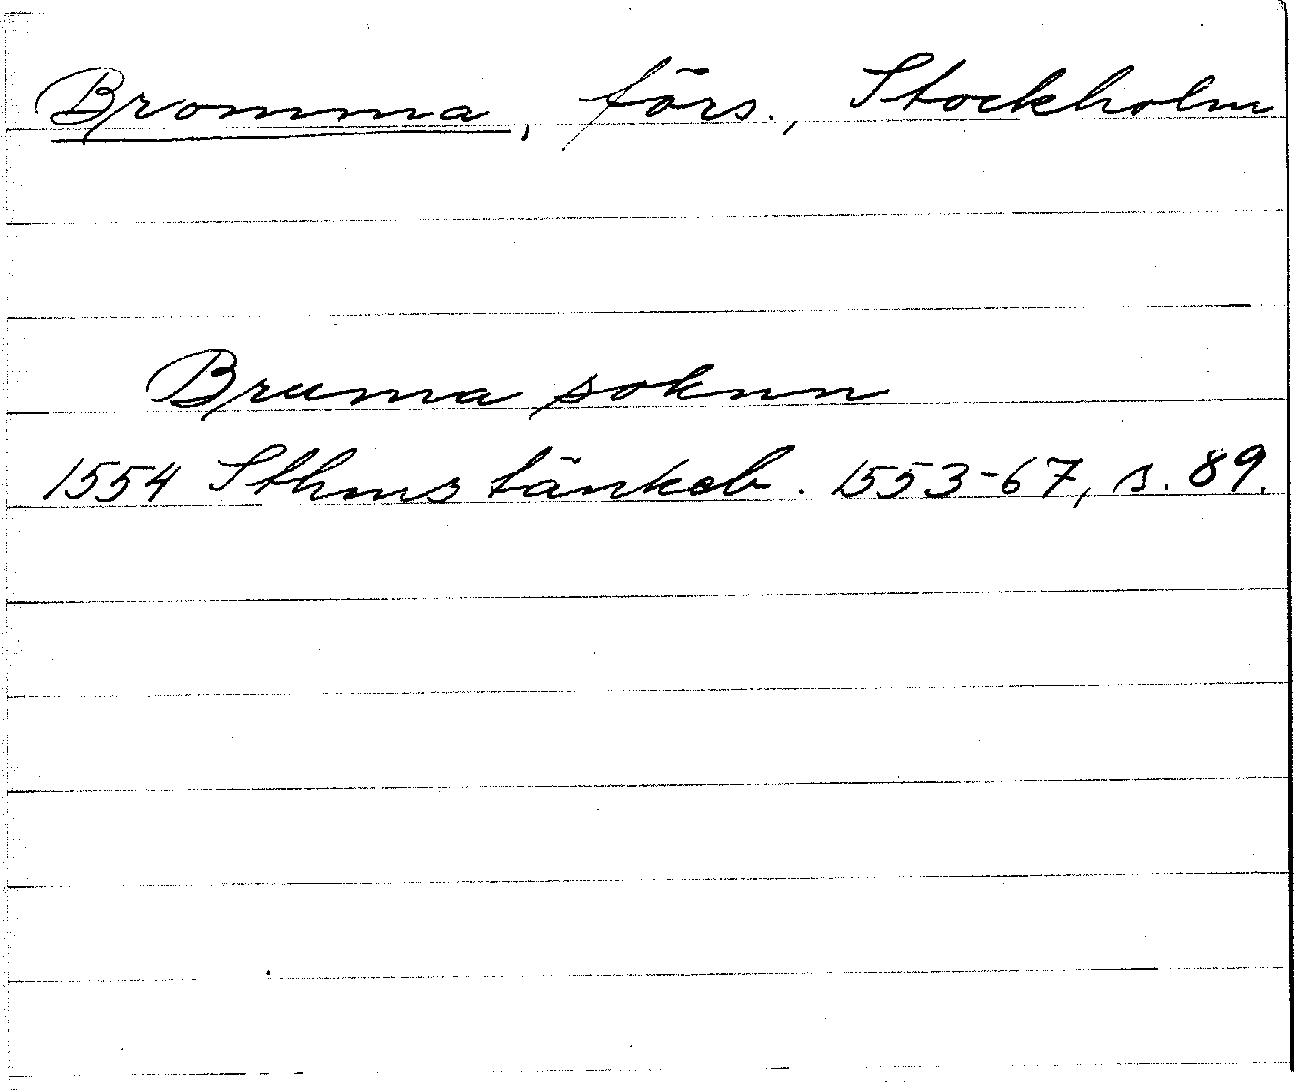 Bromma, förs., Stockholm
Bruma soknn
1554 Sthms tänkeb. 1553-67, s. 89.